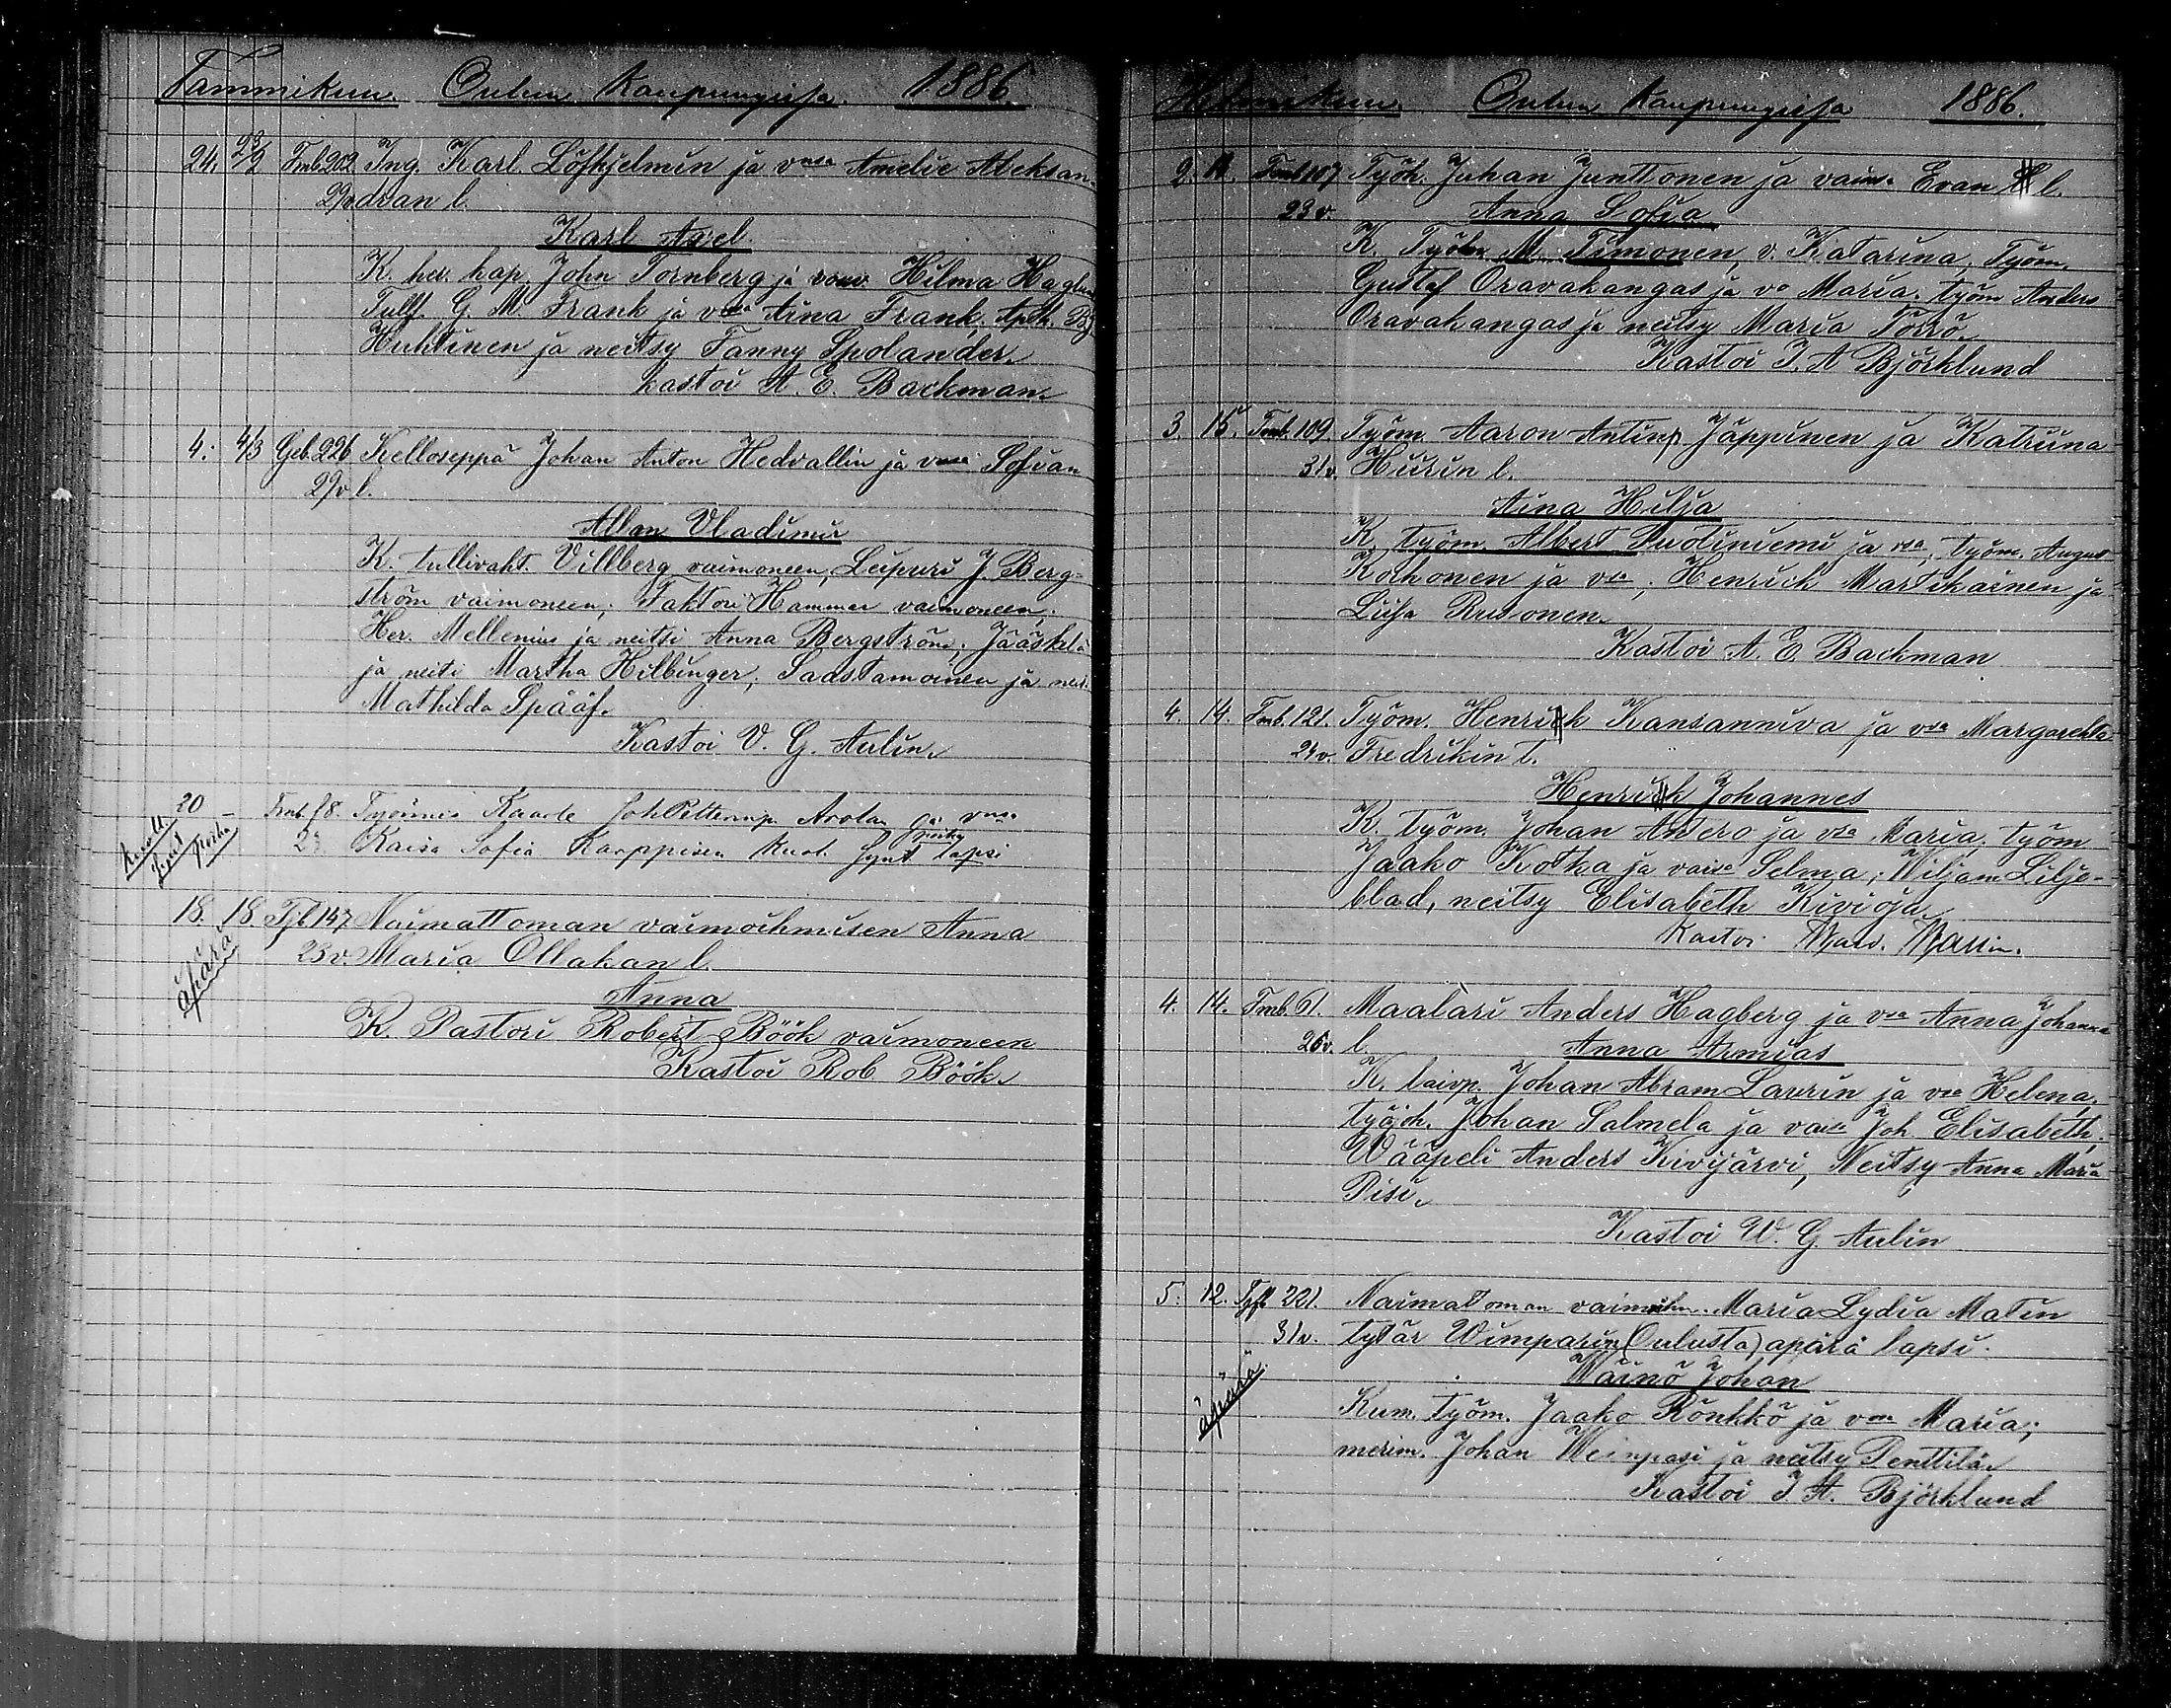 Tammikuu. Oulun Kaupungissa. 1886.
24. 23/2 Fmb 202 Ing. Karl Löfhjelmin ja vmsa Amelie Aleksan-
29v dran l.
Karl Axel.
K. her. kap. John Tornberg ja rouv. Hilma Haglund
Tullf. G. M. Frank ja vsa Aina Frank, Apth. Bj.
Huhtinen ja neitsy Fanny Spolander.
kastoi A. E. Backman.
4. 4/3 Geb. 226 Kelloseppä Johan Anton Hedvallin ja vmsa Sofian
29v l.
Allan Vladimir
K. tullivaht. Villberg vaimoneen, Leipuri J. Berg-
ström vaimoneen; Faktori Hammar vaimoneen;
Her. Mellenius ja neitsi Anna Bergström; Jääskel.
ja neiti Martha Hilbinger; Saastamoinen ja neit.
Mathilda Spååf.
Kastoi V. G. Aulin.
20 – Fmb. 18. Työmies Kaarle Joh Petterinp. Arolan ja vmsa
kuoll. synt. poika
23 Kaisa Sofia Karppisen kuol. synt. poika lapsi
18. 18. Tjf 147 Naimattoman vaimoihmisen Anna
äpärä
23v. Maria Ollakan l.
Anna
K. Pastori Robert Böök vaimoneen
Kastoi Rob Böök.
Helmikuu. Oulun Kaupungissa 1886.
2. 11. Fmb 107 Työh. Juhan Junttonen ja vaims. Evan l.
23v. Anna Sofia
K. Työm M. Timonen, v. Katarina, Työm.
Gustaf Oravakangas ja vo Maria, työm Anders
Oravakangas ja neitsy Maria Törrö.
Kastoi J. A Björklund
3. 15. Fmb. 109 Työm. Aaron Antinp. Jäppinen ja Katriina
31v. Hiirin l.
Aina Hilja
K. työm. Albert Puotiniemi ja vsa, työm. August
Korhonen ja vsa; Henrick Martikainen ja
Liisa Rusonen.
Kastoi A. E. Backman
4. 14. Fmb. 121. Työm. Henrik Kansanniva ja vsa Margareta
24v. Fredrikin l.
Henrik Johannes
K. työm. Johan Antero ja vsa Maria, työm
Jaako Kotka ja vaise Selma; Wiljam Lilje-
blad, neitsy Elisabeth Kivioja.
Kastoi
4. 14. Fmb. 61. Maalari Anders Hagberg ja vsa Anna Johanna
26v. l. Anna Armias
K. laivp. Johan Abram Laurin ja vsa Helena,
työjoh. Johan Salmela ja vaise Joh. Elisabeth,
Wääpeli Anders Kivijärvi, Neitsy Anna Maria
Pisi.
Kastoi W. G Aulin
5. 12. Tjfb 221. Naimatoman vaimoihm. Maria Lydia Matin
31v. tytär Wimparin (Oulusta) äpärä lapsi.
äpärä. Wäinö Johan
Kum. työm. Jaako Rönkkö ja vmo Maria;
merim. Johan Weinpasi ja neitsy Penttilä.
Kastoi J. A. Björklund